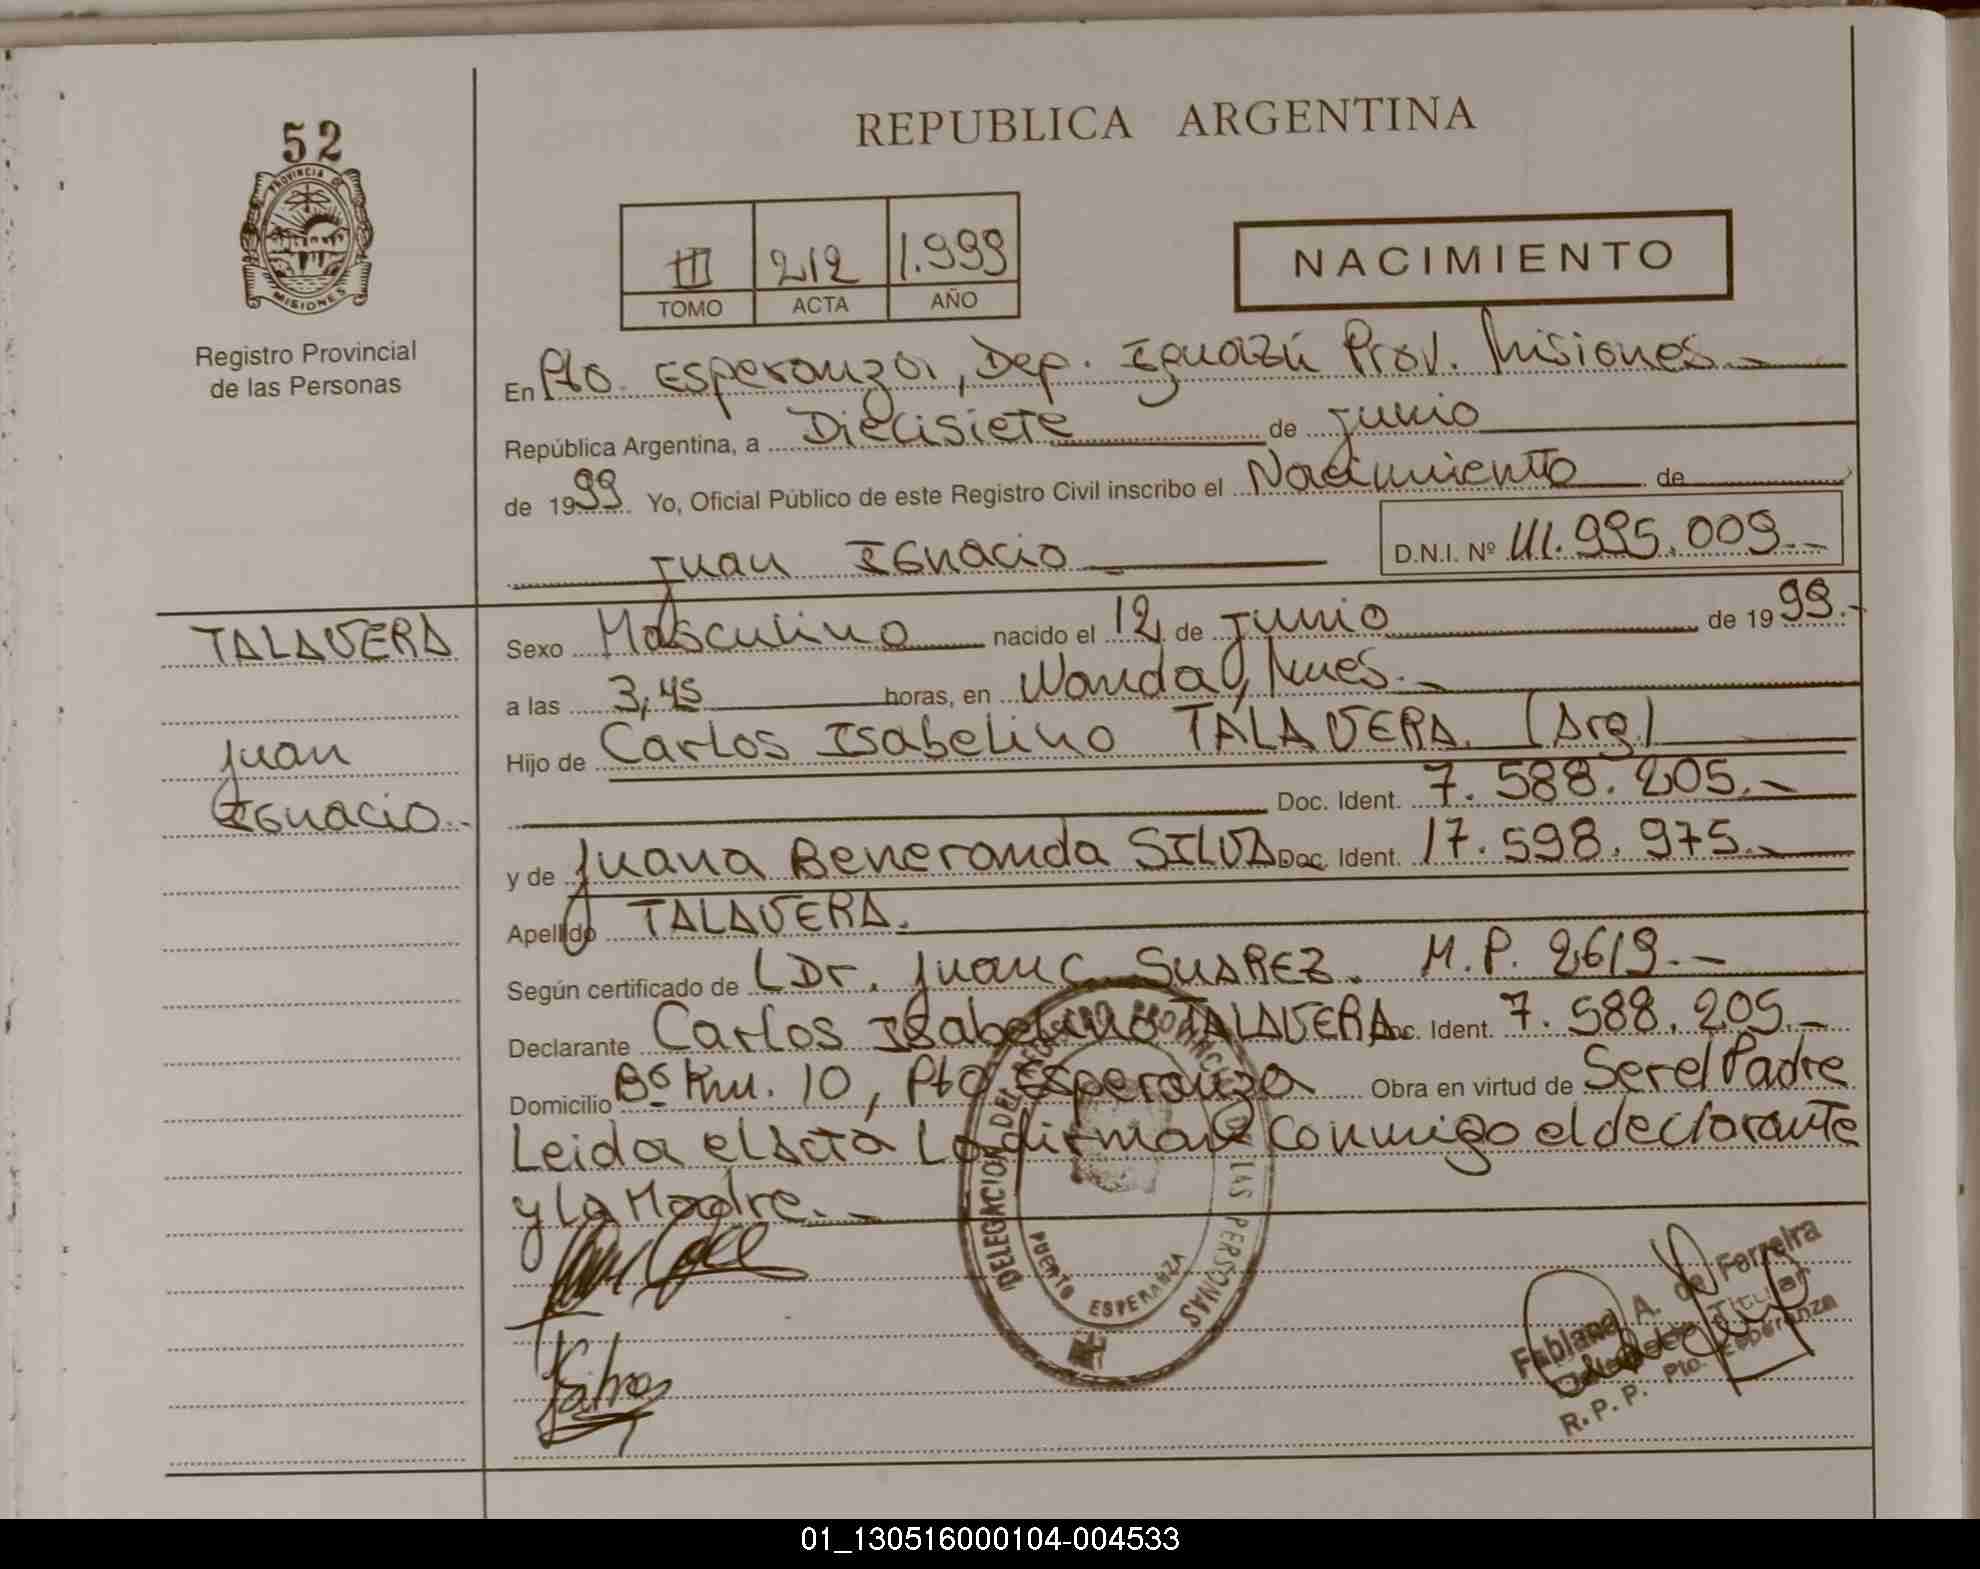 52
PROVINCIA DE
MISIONES
Registro Provincial
de las Personas
REPUBLICA ARGENTINA
III 212 1.999
TOMO ACTA AÑO
NACIMIENTO
En Pto. Esperanza, Dep. Iguazú Prov. Misiones.-
República Argentina, a Diecisiete de junio
de 1999 Yo, Oficial Público de este Registro Civil inscribo el Nacimiento de
Juan Ignacio D.N.I. Nº 41.995.009.-
TALAVERA
Juan
Ignacio.-
Sexo Masculino nacido el 12 de junio de 1999.-
a las 3,45 horas, en Wanda, Mnes.-
Hijo de Carlos Isabelino TALAVERA. (Arg)
Doc. Ident. 7.588.205.-
y de Juana Beneranda SILVA Doc. Ident. 17.598.975.-
Apellido TALAVERA.
Según certificado de Dr. Juan C. SUAREZ. M.P. 2619.-
Declarante Carlos Isabelino TALAVERA Doc. Ident. 7.588.205.-
Domicilio Bº Km. 10, Pto Esperanza Obra en virtud de Ser el Padre
Leida el Acta La firman conmigo el declarante
y la Madre.-
DELEGACION DEL REGISTRO PROVINCIAL DE LAS PERSONAS
PUERTO ESPERANZA
Fabiana A. de Ferreira
Titular
R.P.P. Pto. Esperanza
01_130516000104-004533